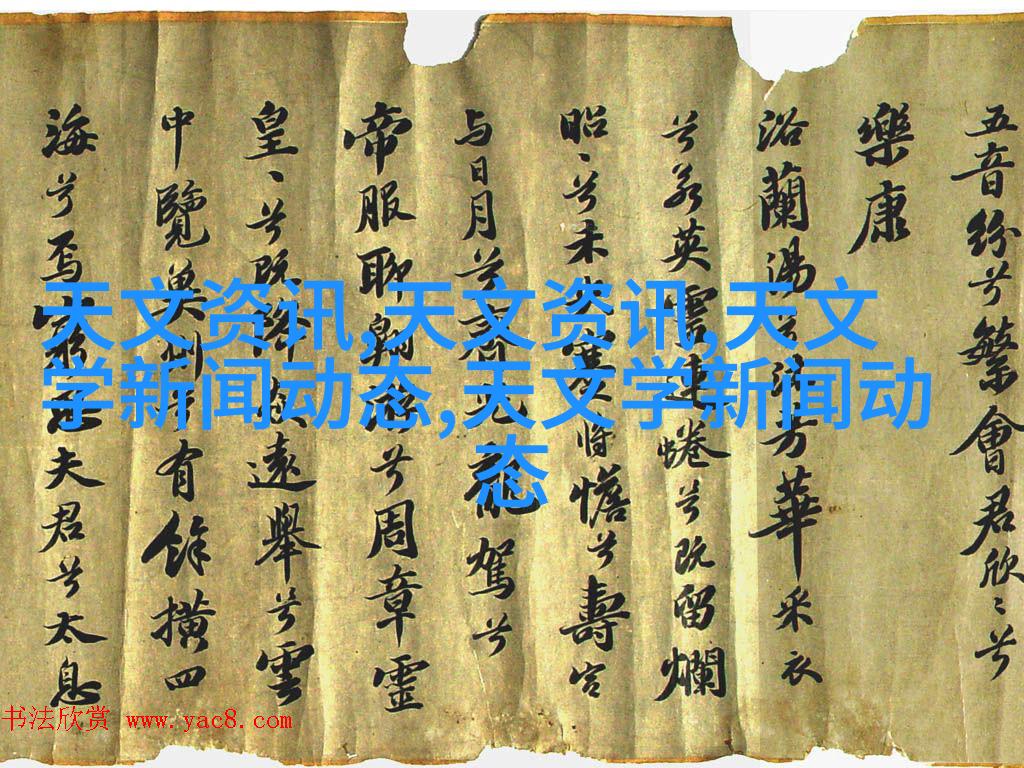 五音纷兮繁會君欣〻兮
樂康
浴蘭湯兮沐芳華采衣
兮若英靈連蜷兮既留爛
昭〻兮未央蹇将憺兮壽宫
与日月兮齊光龍駕兮
帝服聊翱遊兮周章靈
皇〻兮既降猋遠舉兮雲
中覽兾州兮有餘横四
海兮焉窮思夫君兮太息
天文资讯,天文资讯,天文
学新闻动态,天文学新闻动
态
书法欣赏 www.yac8.com